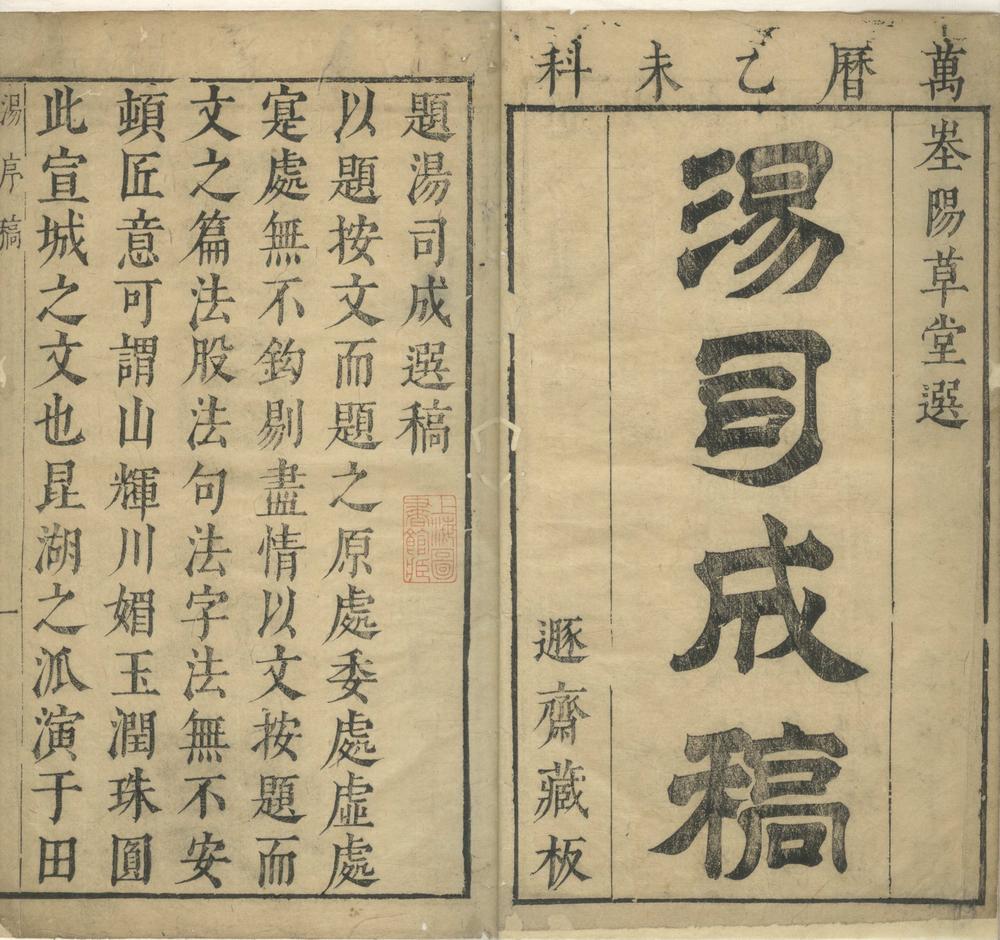 萬曆乙未科
峚陽草堂選
湯司成稿
遯齋藏板
題湯司成選稿
以題按文而題之原處委處虛處
寔處無不鈎剔盡情以文按題而
文之篇法股法句法字法無不安
頓匠意可謂山輝川媚玉潤珠圓
此宣城之文也昆湖之派演于田
湯序稿 一
上海圖書館藏